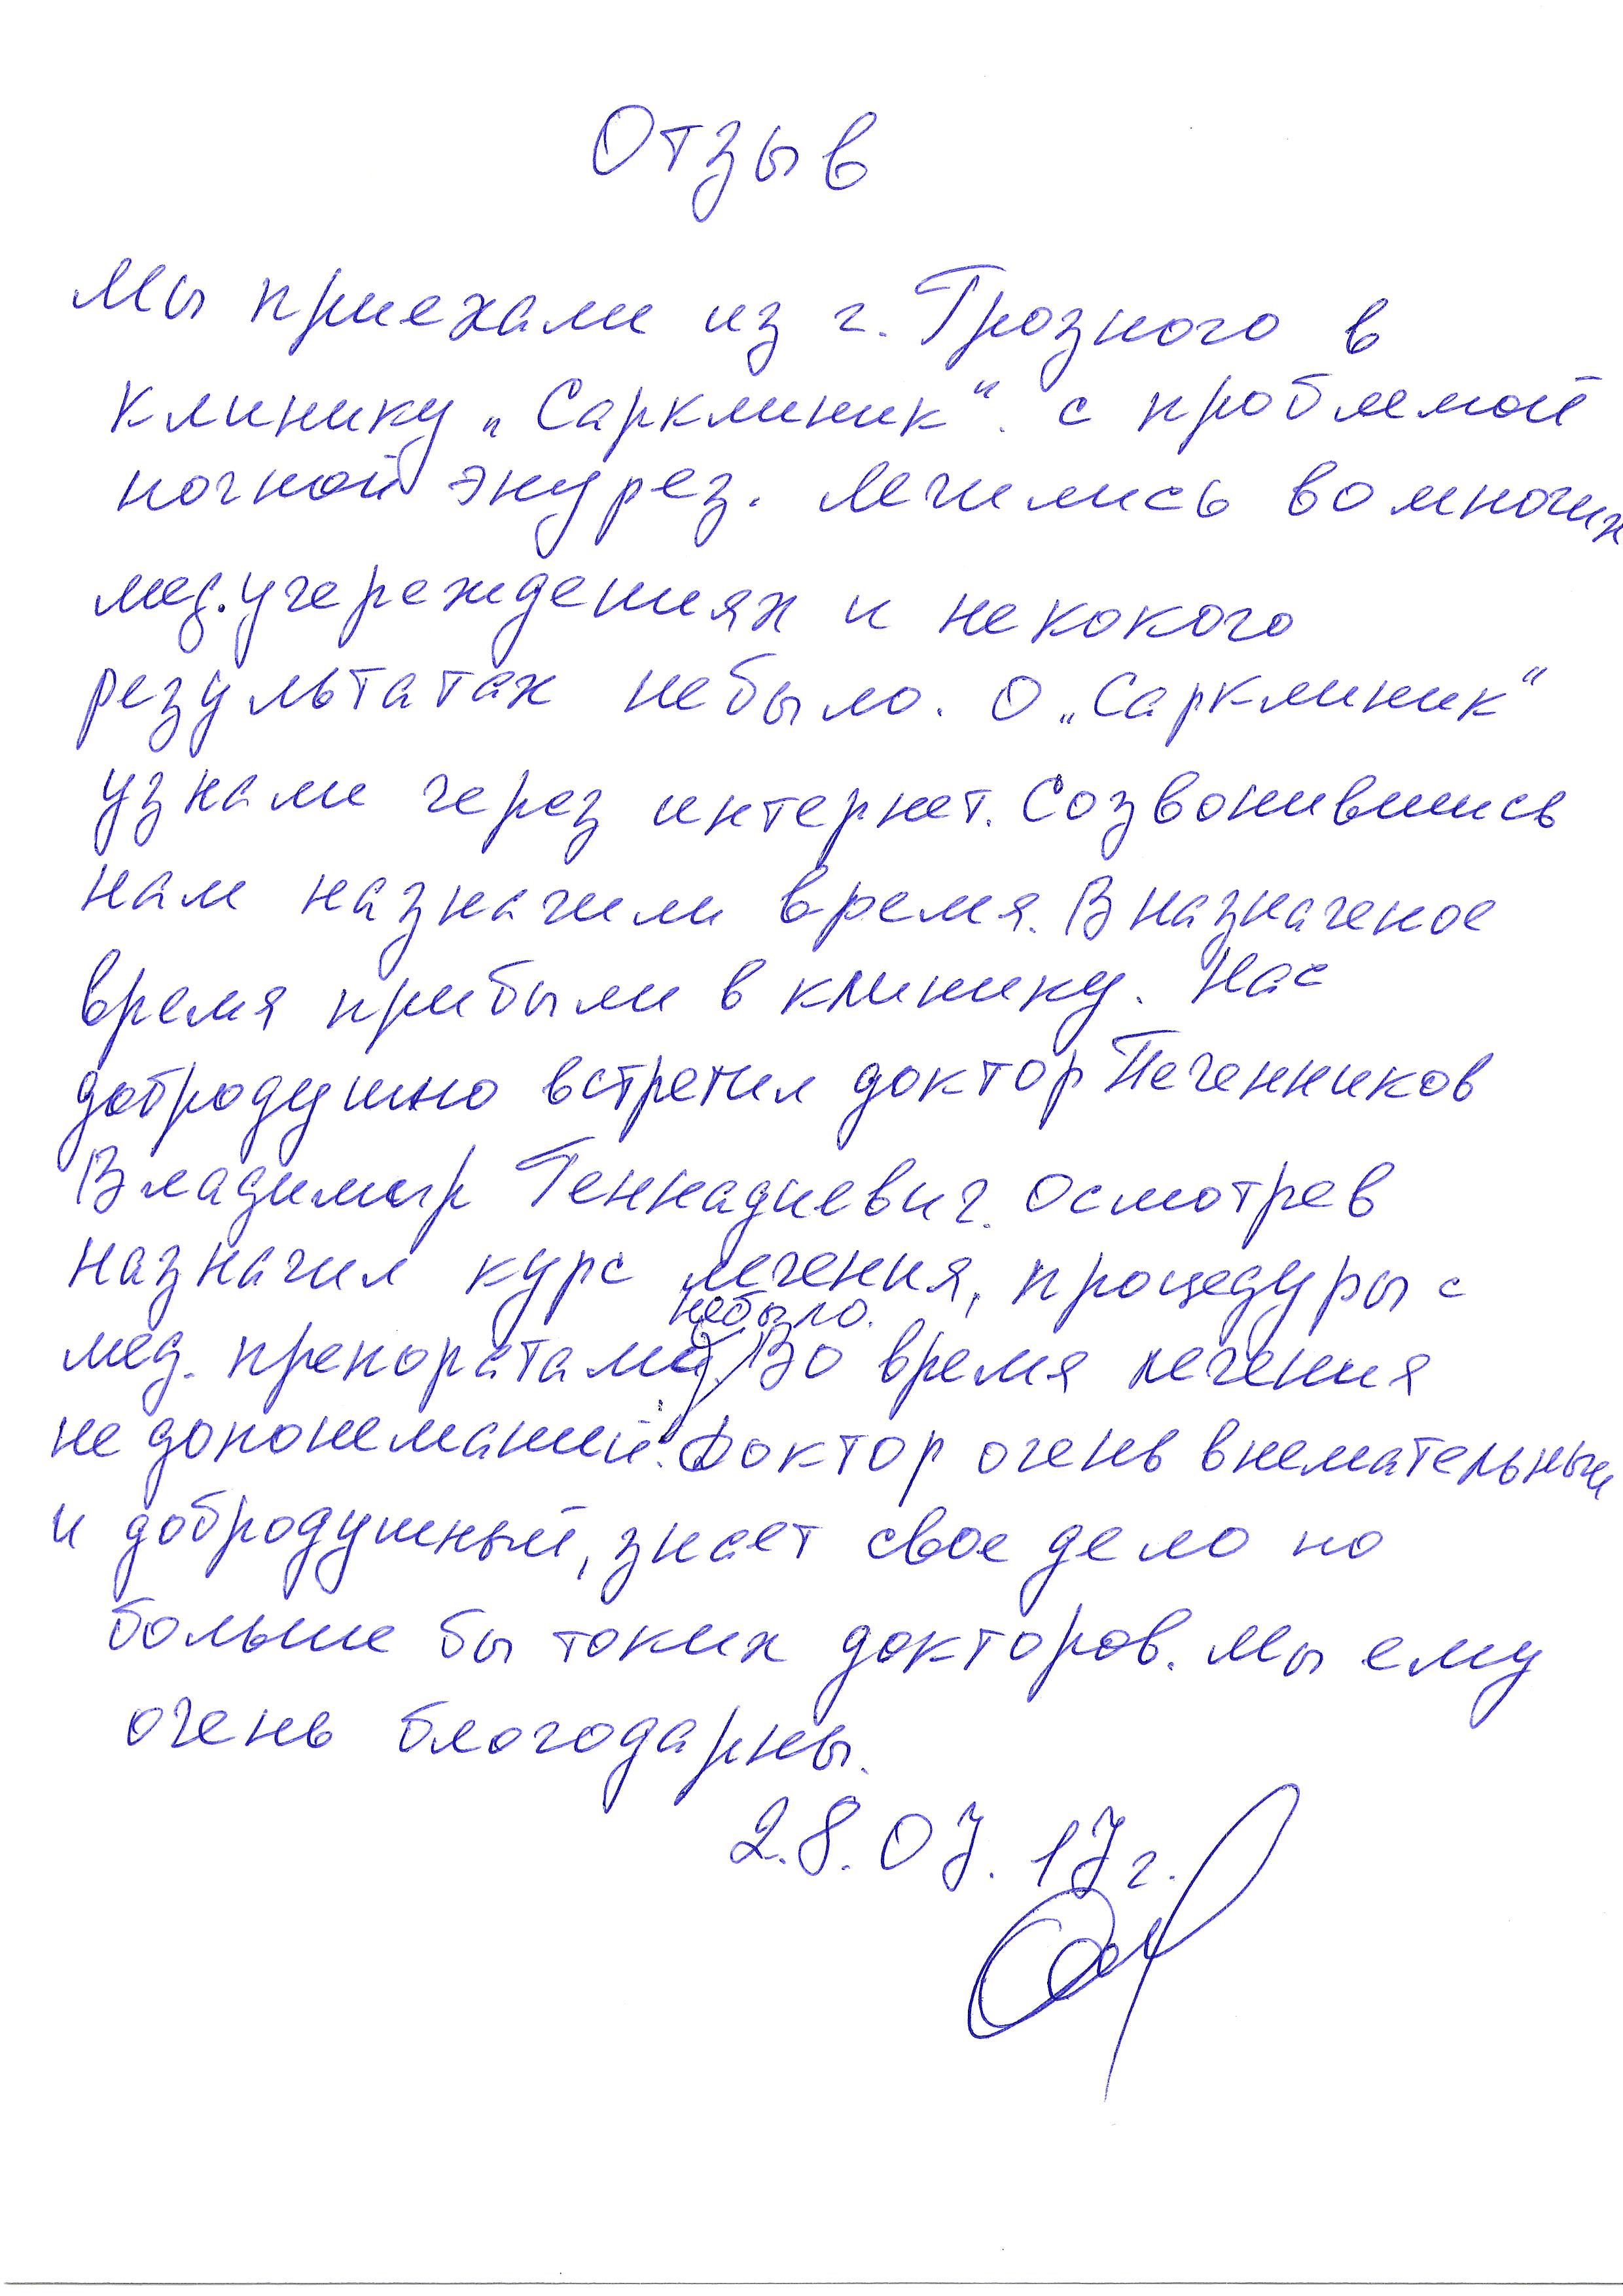 Отзыв
Мы приехали из г. Грозного в
клинику „Саркклиник“. с проблемой
ночной энурез. Лечились во многих
мед.учереждениях и некокого
результатах небыло. О „Саркклиник“
узнали через интернет. Созвонившись
нам назначили время. В назначеное
время прибыли в клинику. Нас
добродушно встретил доктор Печенников
Владимир Геннадиевич. Осмотрев
назначил курс лечения, процедуры с
небыло.
мед. препоратами. Во время лечения
не допонеманий. Доктор очень внемательный
и добродушный, знает свое дело по
больше бы токих докторов. Мы ему
очень блогодарны.
28.07.17г.